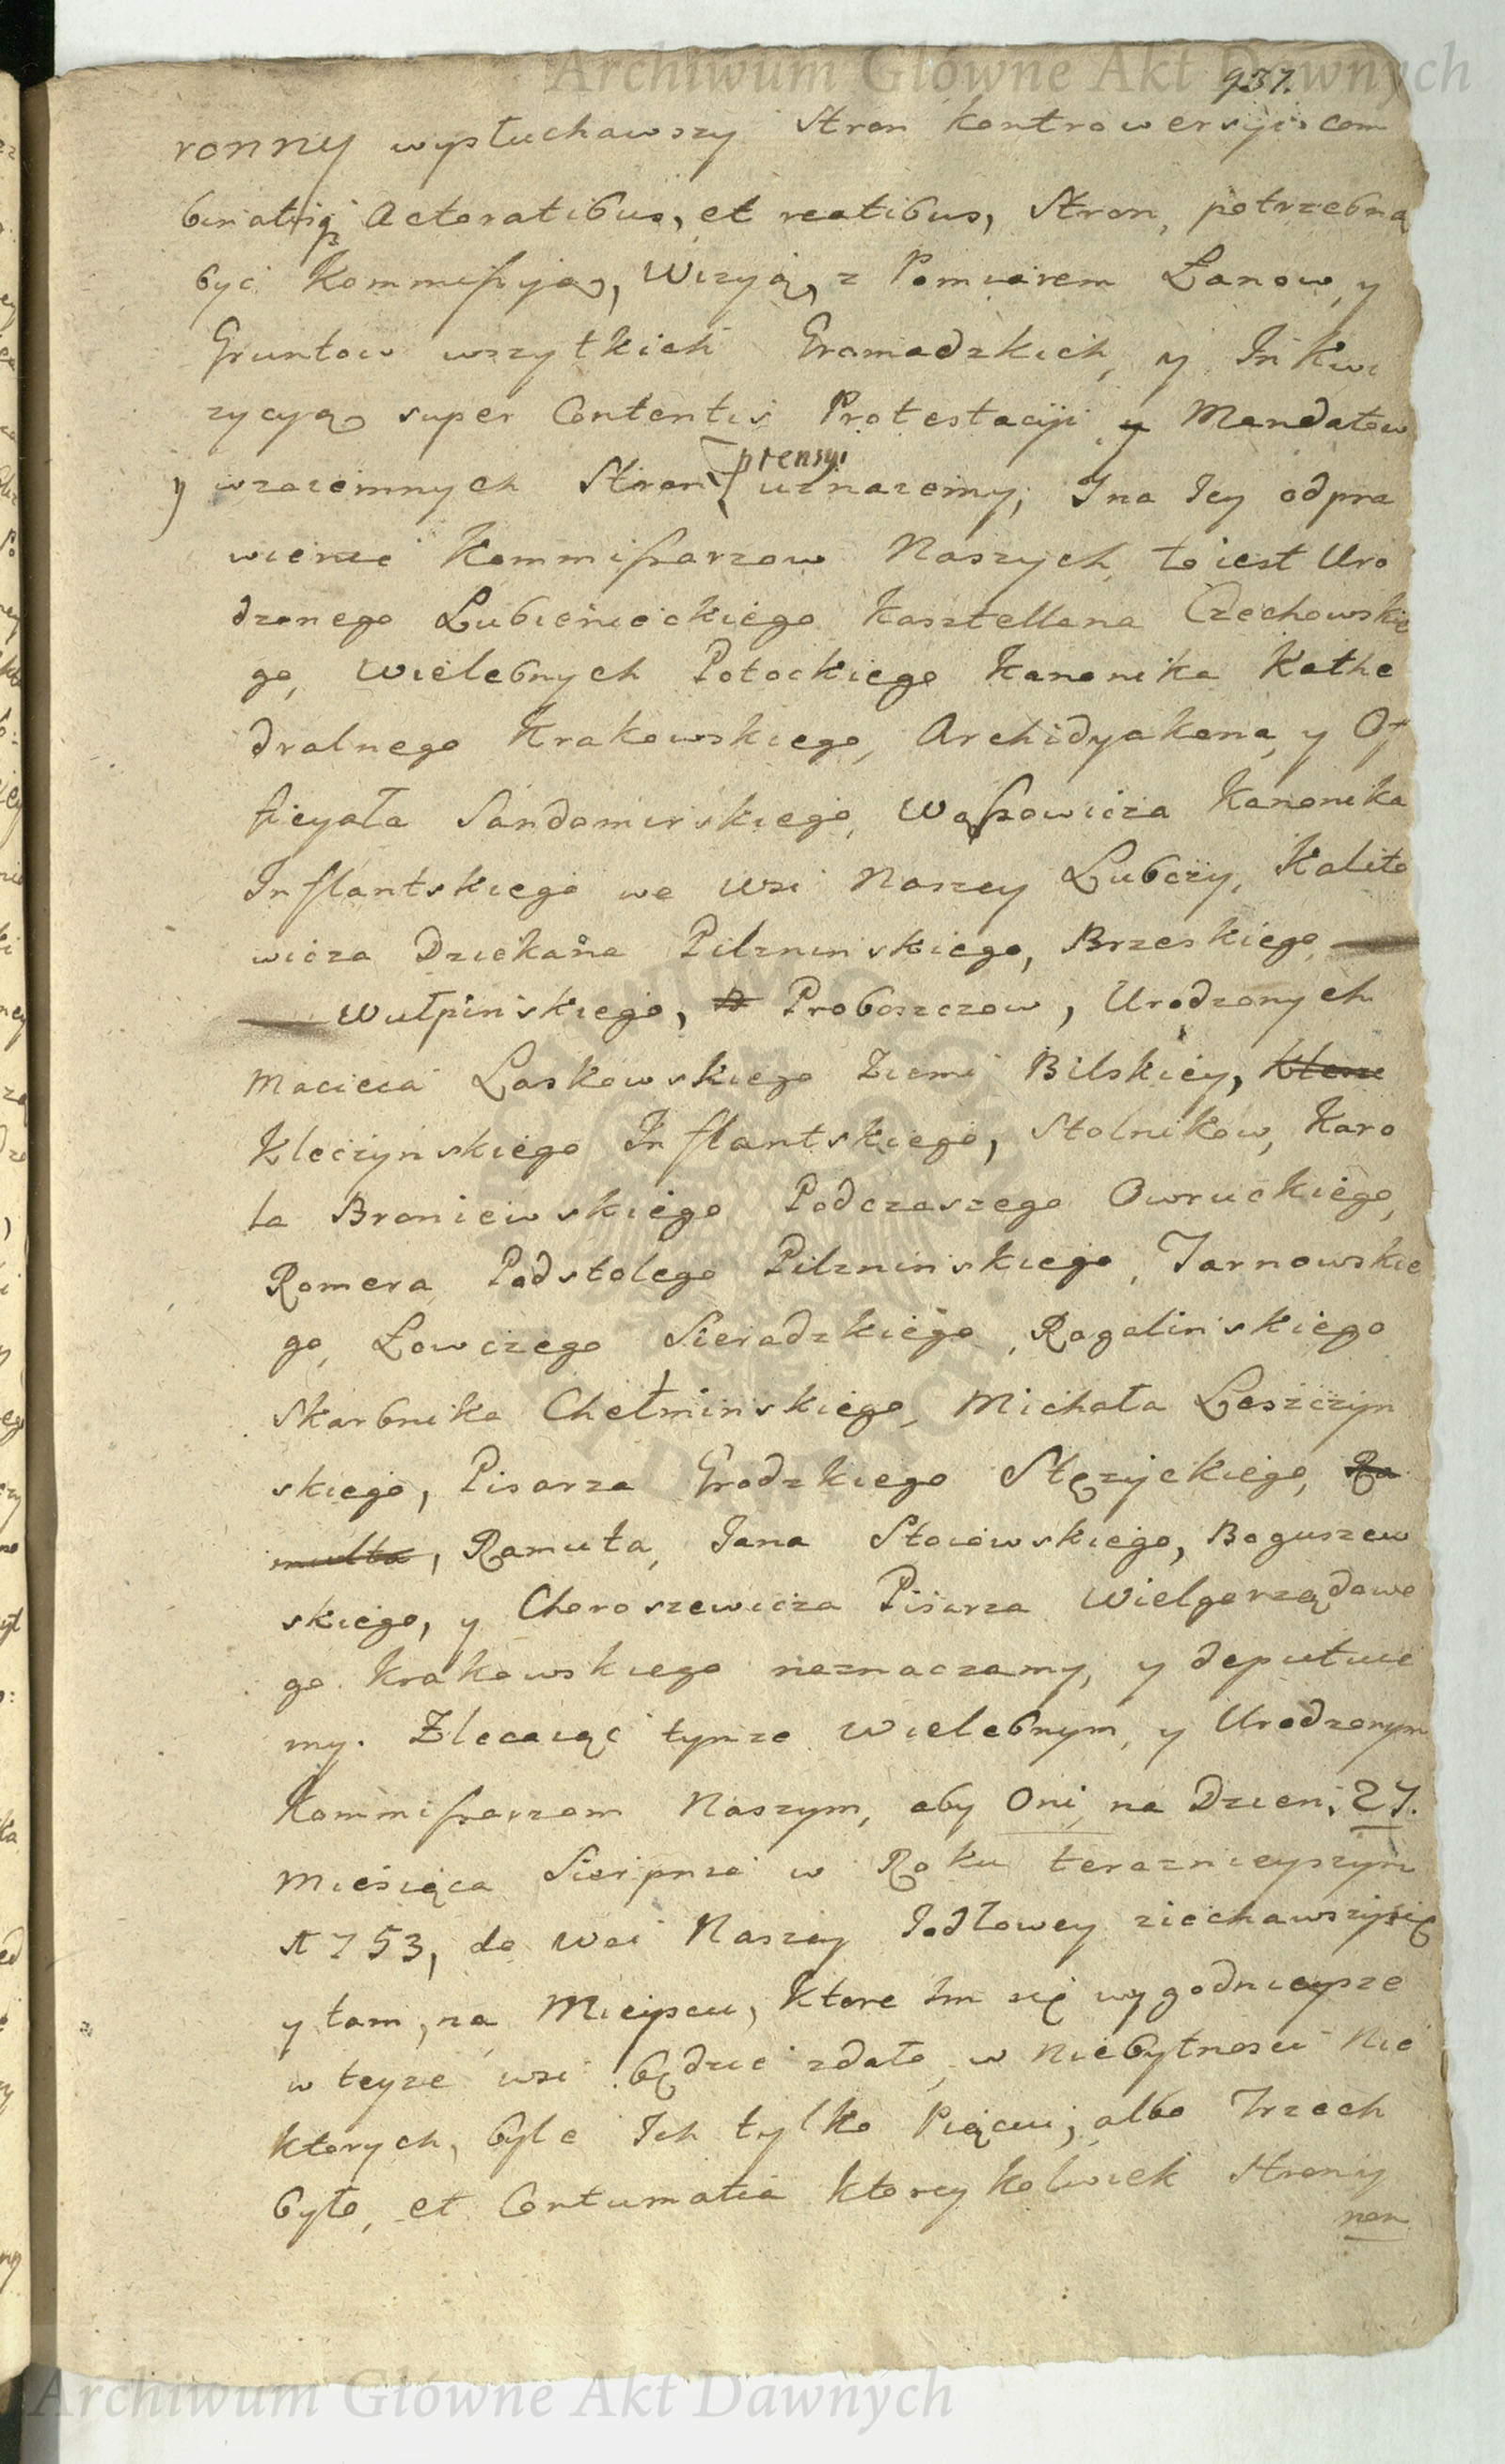 937.
ronny wysłuchawszy Stron kontrowersyi com
binatisq Actoratibus, et reatibus, Stron, potrzebną
być Kommissyją, Wizyą, z Pomiarem Łanow, y
Gruntow wszytkich Gromadzkich, y Inkwi
zycyą super Contentis Protestacyi y Mandatow
y wzaiemnych Stron pretensyi uznaiemy, Ina Iey odpra
wienie Kommissarzow Naszych, to iest Uro
dzonego Lubienieckiego Kasztellana Czechowskie
go, Wielebnych Potockiego Kanonika Kathe
dralnego Krakowskiego, Archidyakona, y Of
ficyała Sandomirskiego, Wąsowicza Kanonika
Inflantskiego we wsi Naszey Lubczy, Kalito
wicza Dziekana Pilzninskiego, Brzeskiego
Wulpinskiego, Proboszczow, Urodzonych
Macieia Laskowskiego Ziemi Bilskiey,
Kleczynskiego Inflantskiego, Stolnikow, Karo
la Broniewskiego Podczaszego Owruckiego,
Romera Podstolego Pilzninskiego, Tarnowskie
go, Łowczego Sieradzkiego, Rogalinskiego
Skarbnika Chełminskiego, Michała Leszczyn
skiego, Pisarza Grodzkiego Stężyckiego, Ra
multa, Ramuła, Jana Stoiowskiego, Boguszew
skiego, y Choroszewicza Pisarza Wielgorządowe
go Krakowskiego naznaczamy, y deputuie
my. Zlecaiąc tymze Wielebnym, y Urodzonym
Kommissarzom Naszym, aby Oni na Dzien 27.
Miesiąca Sierpnia w Roku teraznieyszym
1753, do Wsi Naszey Jodłowey ziechawszysię
y tam, na Mieyscu, Ktore Im się wygodnieysze
w teyze wsi będzie zdało, w niebytnosci Nie
ktorych, byle Ich tylko Piąciu, albo Trzech
było, et Contumatia Ktoreykolwiek Strony
non
Archiwum Główne Akt Dawnych
Archiwum Główne Akt Dawnych